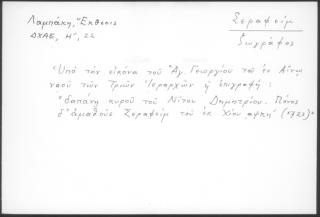 Λαμπάκη, "Έκθεσις
ΔΧΑΕ, Η', 22
Σεραφείμ
ζωγράφος
"Υπό την εικόνα του Άγ. Γεωργίου του εν Αίνω
ναού των Τριών Ιεραρχών η επιγραφή :
"δαπάνη κυρού του Νίτου Δημητρίου. Πόνος
δ' αμαθούς Σεραφείμ του εκ Χίου αψκη' (1723)"